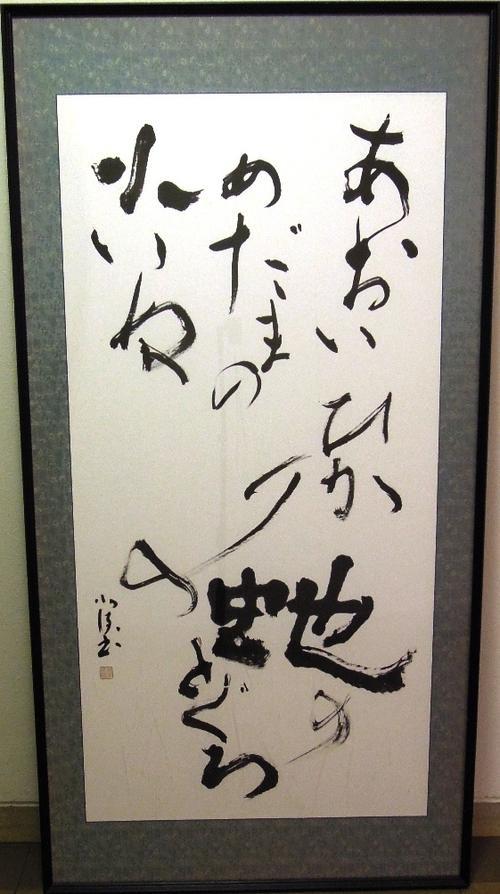 あおい
めだまの
小いぬ
ひかりの
蛇の
とぐろ